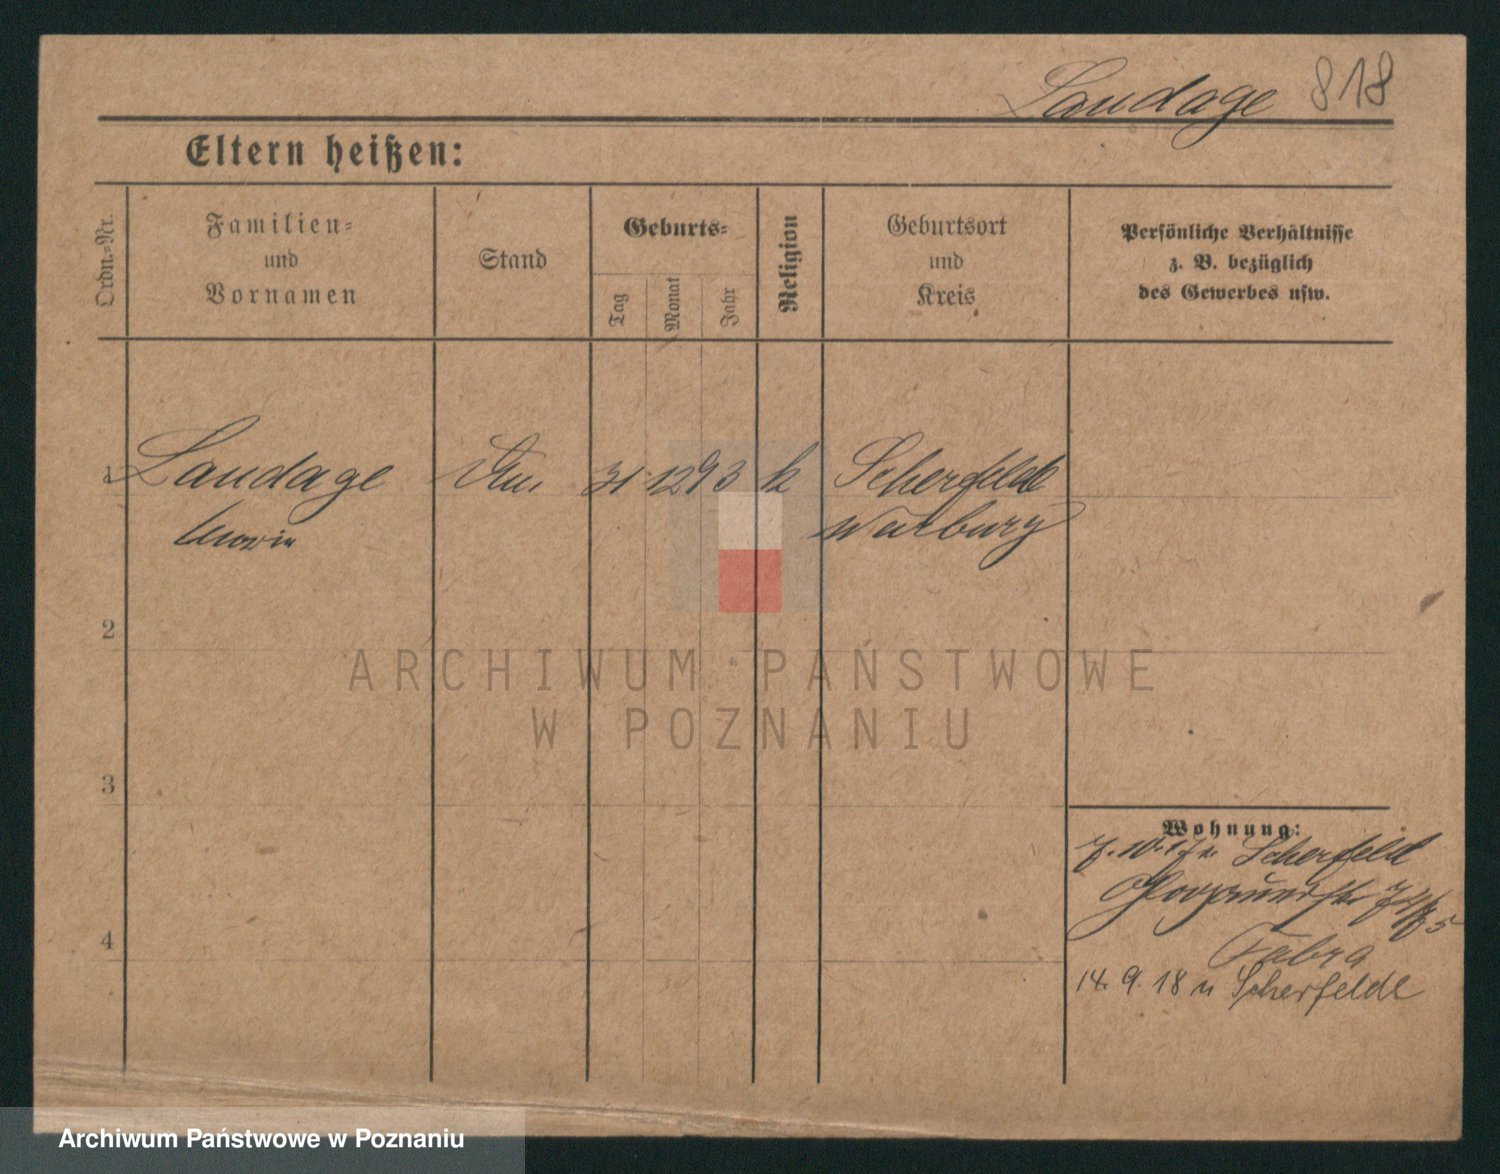 Landage 818
Eltern heißen:
Ordn.-Nr.
Familien-
und
Vornamen
Stand
Geburts-
Tag
Monat
Jahr
Religion
Geburtsort
und
Kreis
Persönliche Verhältnisse
z. B. bezüglich
des Gewerbes usw.
1 Landage 31 12 93 k Scherfelde
Warburg
2
3
4
Wohnung:
Scherfeld
Fabra
14. 9. 18 n Scherfelde
ARCHIWUM PAŃSTWOWE
W POZNANIU
Archiwum Państwowe w Poznaniu